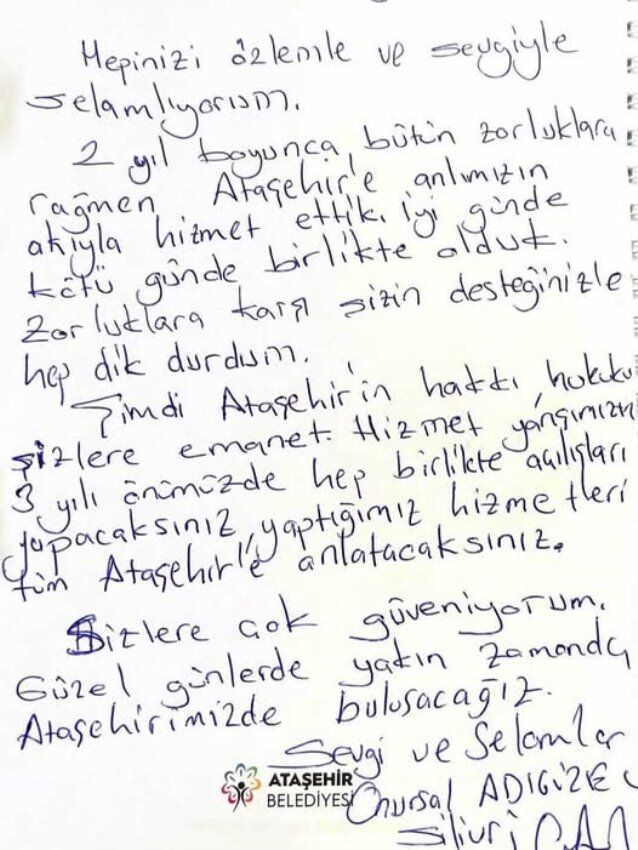 Hepinizi özlemle ve sevgiyle
selamlıyorum.
2 yıl boyunca, bütün zorluklara
rağmen Ataşehir'e anlımızın
akıyla hizmet ettik. iyi günde
kötü günde birlikte olduk.
Zorluklara karşı sizin desteğinizle
hep dik durdum.
Şimdi Ataşehir'in hakkı, hukuku
sizlere emanet. Hizmet yarışımızın
3 yılı önümüzde hep birlikte açılışları
yapacaksınız, yaptığımız hizmetleri
tüm Ataşehir'e anlatacaksınız.
Sizlere çok güveniyorum.
Güzel günlerde yakın zamanda
Ataşehirimizde buluşacağız.
Sevgi ve Selamlar
Onursal ADIGÜZE
Silivri
ATAŞEHİR
BELEDİYESİ